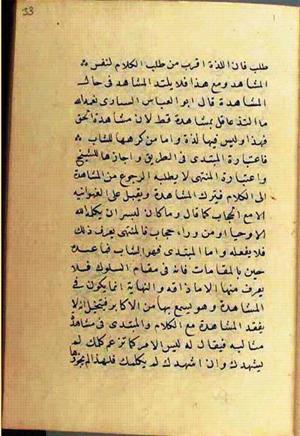 33
طلب فان اللذة اقرب من طلب الكلام لنفس
المشاهد ومع هذا فلا يلتذ المشاهد في حال
المشاهدة قال ابو العباس السيارى
ما التذ عاقل بمشاهدة قط لان مشاهدة الحق
فيها وليس فيها لذة واما من كرهها للشاب
فاعتباره المبتدى في الطريق واجازها للشيخ
واعتباره المنتهى لا يطلبه الرجوع من المشاهدة
الى الكلام فيترك المشاهدة ويقبل على الفهوانية
الا مع الحجاب كما قال وما كان لبشر ان يكلمه الله
الا وحيا او من وراء حجاب فالمنتهى يعرف ذلك
فلا يفعله واما المبتدى فهو الشاب فما عنده
خبرة بالمقامات فانه في مقام السلوك فلا
يعرف منها الا ما ذاقه والنهاية انما يكون في
المشاهدة وهو يسمع بها من الاكابر فيتخيل انه لا
يفقد المشاهدة مع الكلام والمبتدى في مشاهدة
مثالية فيقال له ليس الامر كما تزعم ان كلمك لم
يشهدك وان اشهدك لم يكلمك فلهذا لم يجوزها